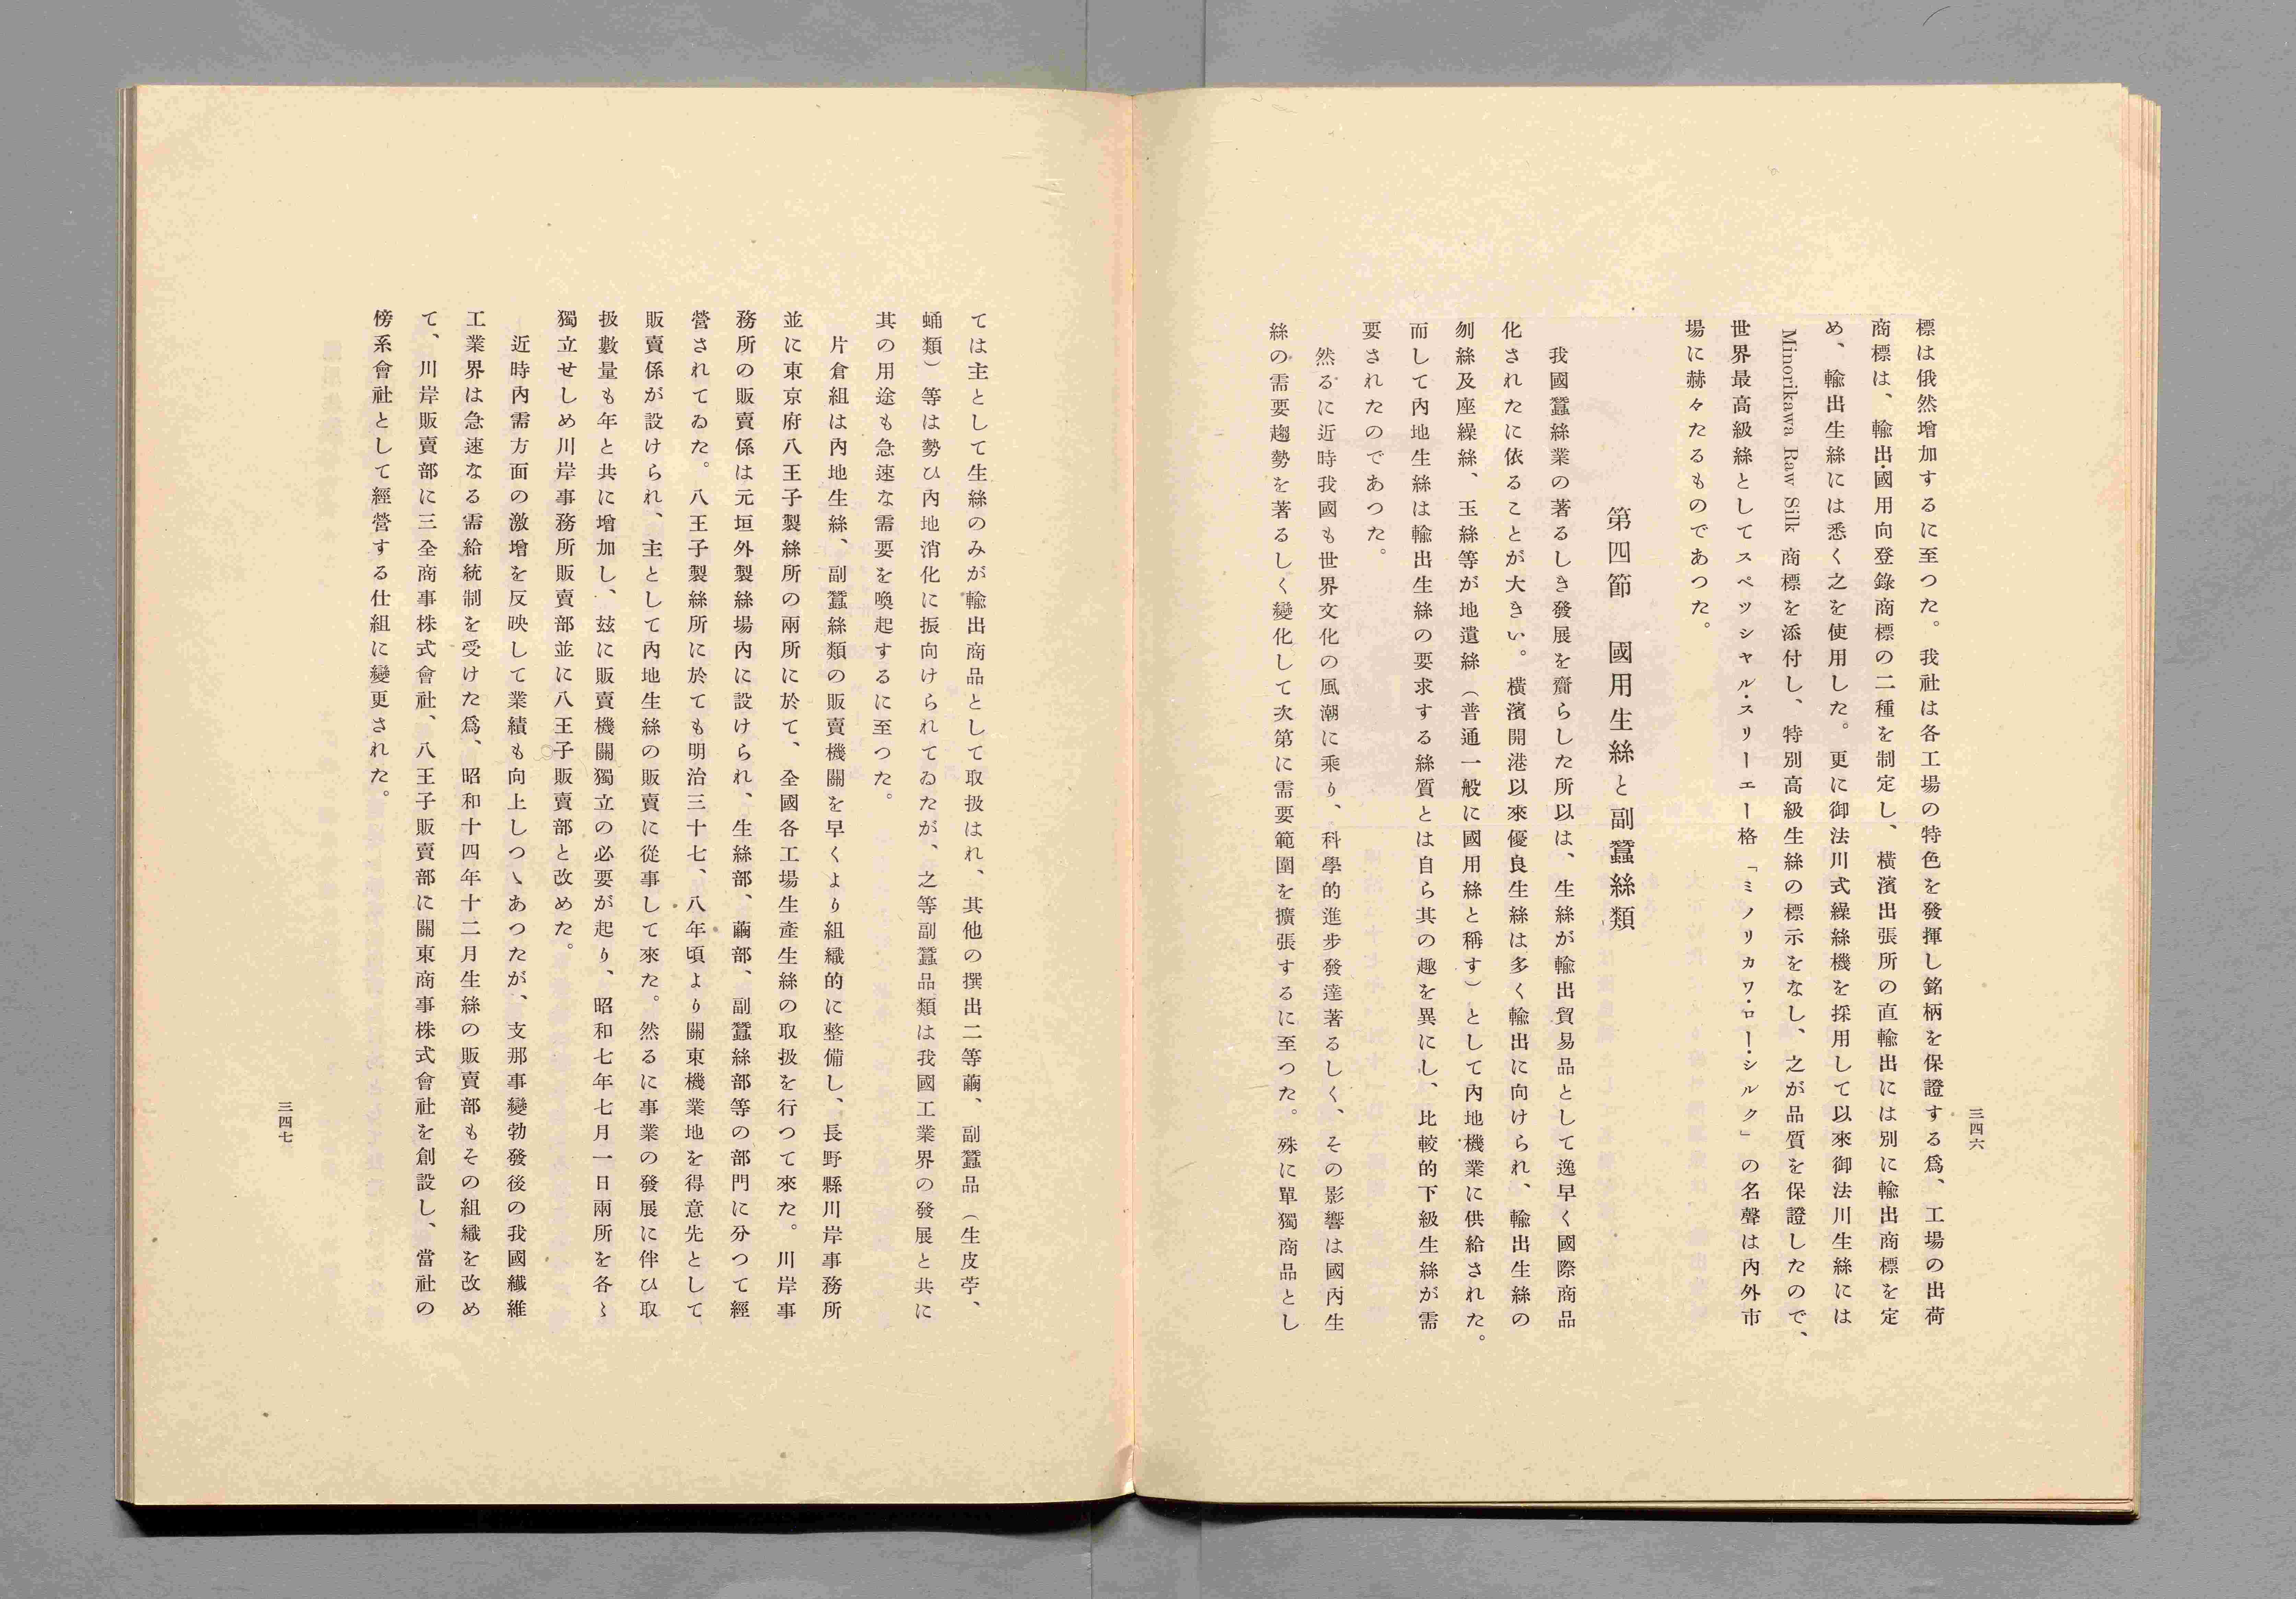 三四六
標は俄然增加するに至つた。我社は各工場の特色を發揮し銘柄を保證する爲、工場の出荷
商標は、輸出・國用向登錄商標の二種を制定し、橫濱出張所の直輸出には別に輸出商標を定
め、輸出生絲には悉く之を使用した。更に御法川式繰絲機を採用して以來御法川生絲には
Minorikawa Raw Silk 商標を添付し、特別高級生絲の標示をなし、之が品質を保證したので、
世界最高級絲としてスペッシャル・スリーエー格「ミノリカワ・ロー・シルク」の名聲は內外市
場に赫々たるものであつた。
第四節　國用生絲と副蠶絲類
我國蠶絲業の著るしき發展を齎らした所以は、生絲が輸出貿易品として逸早く國際商品
化されたに依ることが大きい。橫濱開港以來優良生絲は多く輸出に向けられ、輸出生絲の
刎絲及座繰絲、玉絲等が地遺絲（普通一般に國用絲と稱す）として內地機業に供給された。
而して內地生絲は輸出生絲の要求する絲質とは自ら其の趣を異にし、比較的下級生絲が需
要されたのであつた。
然るに近時我國も世界文化の風潮に乘り、科學的進步發達著るしく、その影響は國內生
絲の需要趨勢を著るしく變化して次第に需要範圍を擴張するに至つた。殊に單獨商品とし
ては主として生絲のみが輸出商品として取扱はれ、其他の撰出二等繭、副蠶品（生皮苧、
蛹類）等は勢ひ內地消化に振向けられてゐたが、之等副蠶品類は我國工業界の發展と共に
其の用途も急速な需要を喚起するに至つた。
片倉組は內地生絲、副蠶絲類の販賣機關を早くより組織的に整備し、長野縣川岸事務所
並に東京府八王子製絲所の兩所に於て、全國各工場生產生絲の取扱を行つて來た。川岸事
務所の販賣係は元垣外製絲場內に設けられ、生絲部、繭部、副蠶絲部等の部門に分つて經
營されてゐた。八王子製絲所に於ても明治三十七、八年頃より關東機業地を得意先として
販賣係が設けられ、主として內地生絲の販賣に從事して來た。然るに事業の發展に伴ひ取
扱數量も年と共に增加し、玆に販賣機關獨立の必要が起り、昭和七年七月一日兩所を各〻
獨立せしめ川岸事務所販賣部並に八王子販賣部と改めた。
近時內需方面の激增を反映して業績も向上しつゝあつたが、支那事變勃發後の我國纖維
工業界は急速なる需給統制を受けた爲、昭和十四年十二月生絲の販賣部もその組織を改め
て、川岸販賣部に三全商事株式會社、八王子販賣部に關東商事株式會社を創設し、當社の
傍系會社として經營する仕組に變更された。
三四七